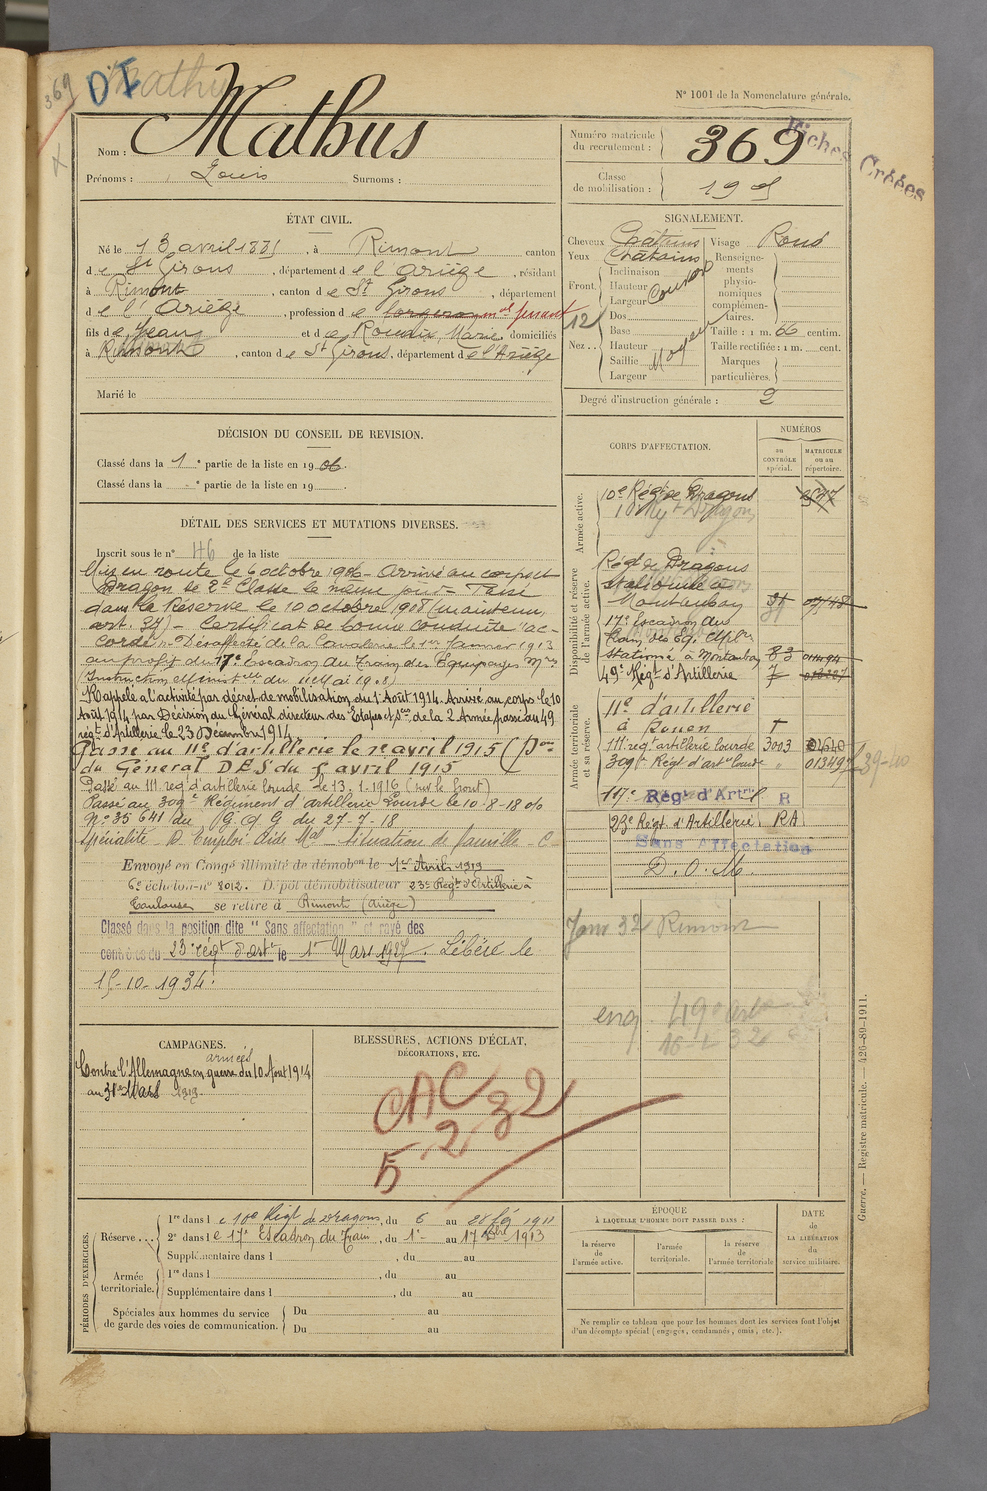 369
DI
Mathus
N° 1001 de la Nomenclature générale.
Nom : Mathus
Prénoms : Louis Surnoms :
Numéro matricule du recrutement : 369
Fiches Créées
Classe de mobilisation : 19
ÉTAT CIVIL.
Né le 13 avril 1885, à Rimont canton
de St Girons, département de l'Ariège, résidant
à Rimont, canton de St Girons, département
de l'Ariège, profession de forgeron mal ferrant
fils de Jean et de Roudis, Marie domiciliés
à Rimont, canton de St Girons, département de l'Ariège
Marié le
SIGNALEMENT.
Cheveux Châtains Visage Rond
Yeux Châtains Renseignements physionomiques complémentaires.
Front. Inclinaison
Hauteur
Largeur
12
Nez. Dos Moyen
Base Taille : 1 m. 66 centim.
Hauteur Taille rectifiée : 1 m. cent.
Saillie Marques
Largeur particulières.
Degré d'instruction générale : 2
DÉCISION DU CONSEIL DE REVISION.
Classé dans la 1e partie de la liste en 1906.
Classé dans la e partie de la liste en 19
DÉTAIL DES SERVICES ET MUTATIONS DIVERSES.
Inscrit sous le n° 46 de la liste
Mis en route le 6 octobre 1906 - Arrivé au corps et
Dragon de 2e Classe le même jour - Passé
dans la Réserve le 10 octobre 1908 (maintenu
art. 34) - Certificat de bonne conduite "ac-
cordé" - Désaffecté de la Cavalerie le 1er Janvier 1913
au profit du 17e Escadron du Train des Equipages Mres
(Instruction Minist elle du 11 Mai 1908)
Rappelé à l'activité par décret de mobilisation du 1er Août 1914. Arrivé au corps le 10
Août 1914 par Décision du Général directeur des Etapes et Sces de la 2 Armée passé au 49
régt d'Artillerie le 23 Décembre 1914
Passé au 11e d'artillerie le 1er avril 1915 (Don
du Général D.E.S du 5 avril 1915
Passé au 111 reg d'artillerie lourde le 13.1.1916 (sur le front)
Passé au 309e Régiment d'artillerie Lourde le 10-8-18 o/o
N° 35641 du G.Q.G du 27-7-18
Spécialité D Emploi Aide Mal Situation de famille - C
Envoyé en Congé illimité de démobon le 1er Avril 1919
6e échelon n° 8012. Dépôt démobilisateur 23e Régt d'Artillerie à
Toulouse se retire à Rimont (Ariège)
Classé dans la position dite "Sans affectation" et rayé des
contrôles du 23e régt d'arte le 1er Mars 1927. Libéré le
15-10-1934.
CORPS D'AFFECTATION.
NUMÉROS
au CONTRÔLE spécial. MATRICULE ou au répertoire.
Armée active.
10e Régt de Dragons
Disponibilité et réserve de l'armée active.
Régt de Dragons
stationné à
Montauban
17e Escadron du
Train des Eq.
stationné à Montauban 83
49e Régt d'Artillerie 7
Armée territoriale et sa réserve.
11e d'artillerie
à Rouen
111 régt artillerie lourde 3003
309e Régt d'arte lourde 01349
117e Régt d'Artrie R
23e Régt d'Artillerie RA
Sans Affectation
D. O. M.
Janv 32 Rimont
eng 49e art
16-1-32
CAMPAGNES.
Contre l'Allemagne armées en guerre du 10 Août 1914
au 31 Mars 1919.
BLESSURES, ACTIONS D'ÉCLAT,
DÉCORATIONS, ETC.
CAC
5-2-32
PÉRIODES D'EXERCICES.
Réserve... 1re dans le 10e Régt de Dragons, du 6 au 28 fév 1911
2e dans le 17e Escadron du Train, du 1er au 17 1913
Supplémentaire dans l , du au
Armée territoriale. 1re dans l , du au
Supplémentaire dans l , du au
Spéciales aux hommes du service Du au
de garde des voies de communication. Du au
ÉPOQUE
À LAQUELLE L'HOMME DOIT PASSER DANS :
la réserve de l'armée active. l'armée territoriale. la réserve de l'armée territoriale
DATE de LA LIBÉRATION du service militaire.
Ne remplir ce tableau que pour les hommes dont les services font l'objet
d'un décompte spécial (engagés, condamnés, omis, etc.).
Guerre. — Registre matricule. — 426-89-1911.